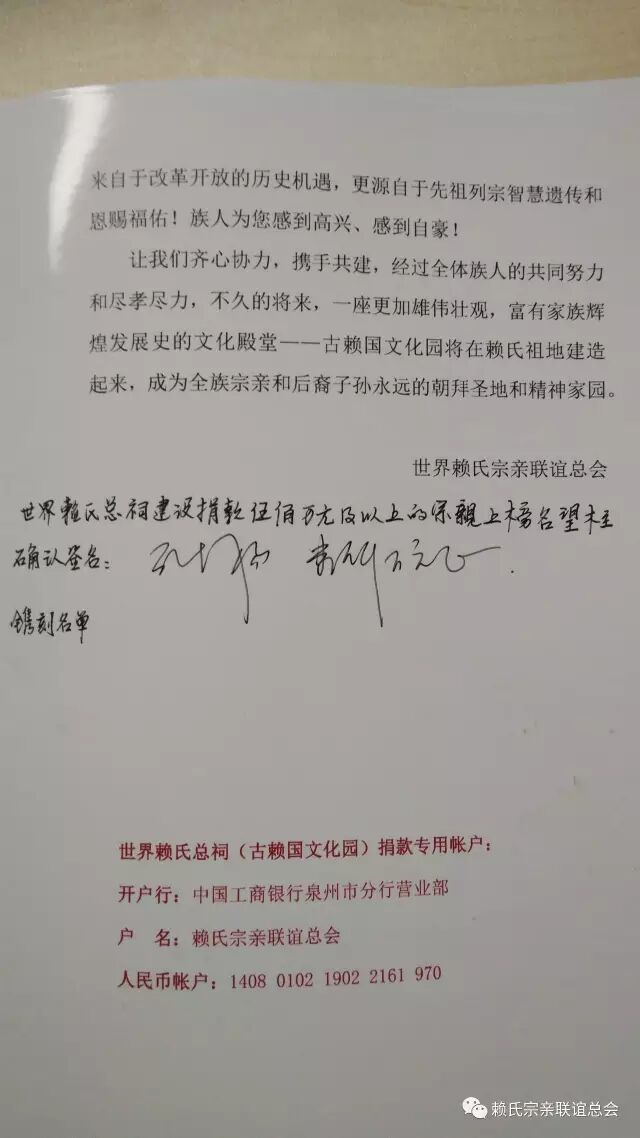 来自于改革开放的历史机遇，更源自于先祖列宗智慧遗传和
恩赐福佑！族人为您感到高兴、感到自豪！
让我们齐心协力，携手共建，经过全体族人的共同努力
和尽孝尽力，不久的将来，一座更加雄伟壮观，富有家族辉
煌发展史的文化殿堂——古赖国文化园将在赖氏祖地建造
起来，成为全族宗亲和后裔子孙永远的朝拜圣地和精神家园。
世界赖氏宗亲联谊总会
世界赖氏总祠建设捐款伍佰万元及以上的宗親上榜名望柱
确认签名：
镌刻名单
世界赖氏总祠（古赖国文化园）捐款专用帐户：
开户行：中国工商银行泉州市分行营业部
户 名：赖氏宗亲联谊总会
人民币帐户：1408 0102 1902 2161 970
赖氏宗亲联谊总会